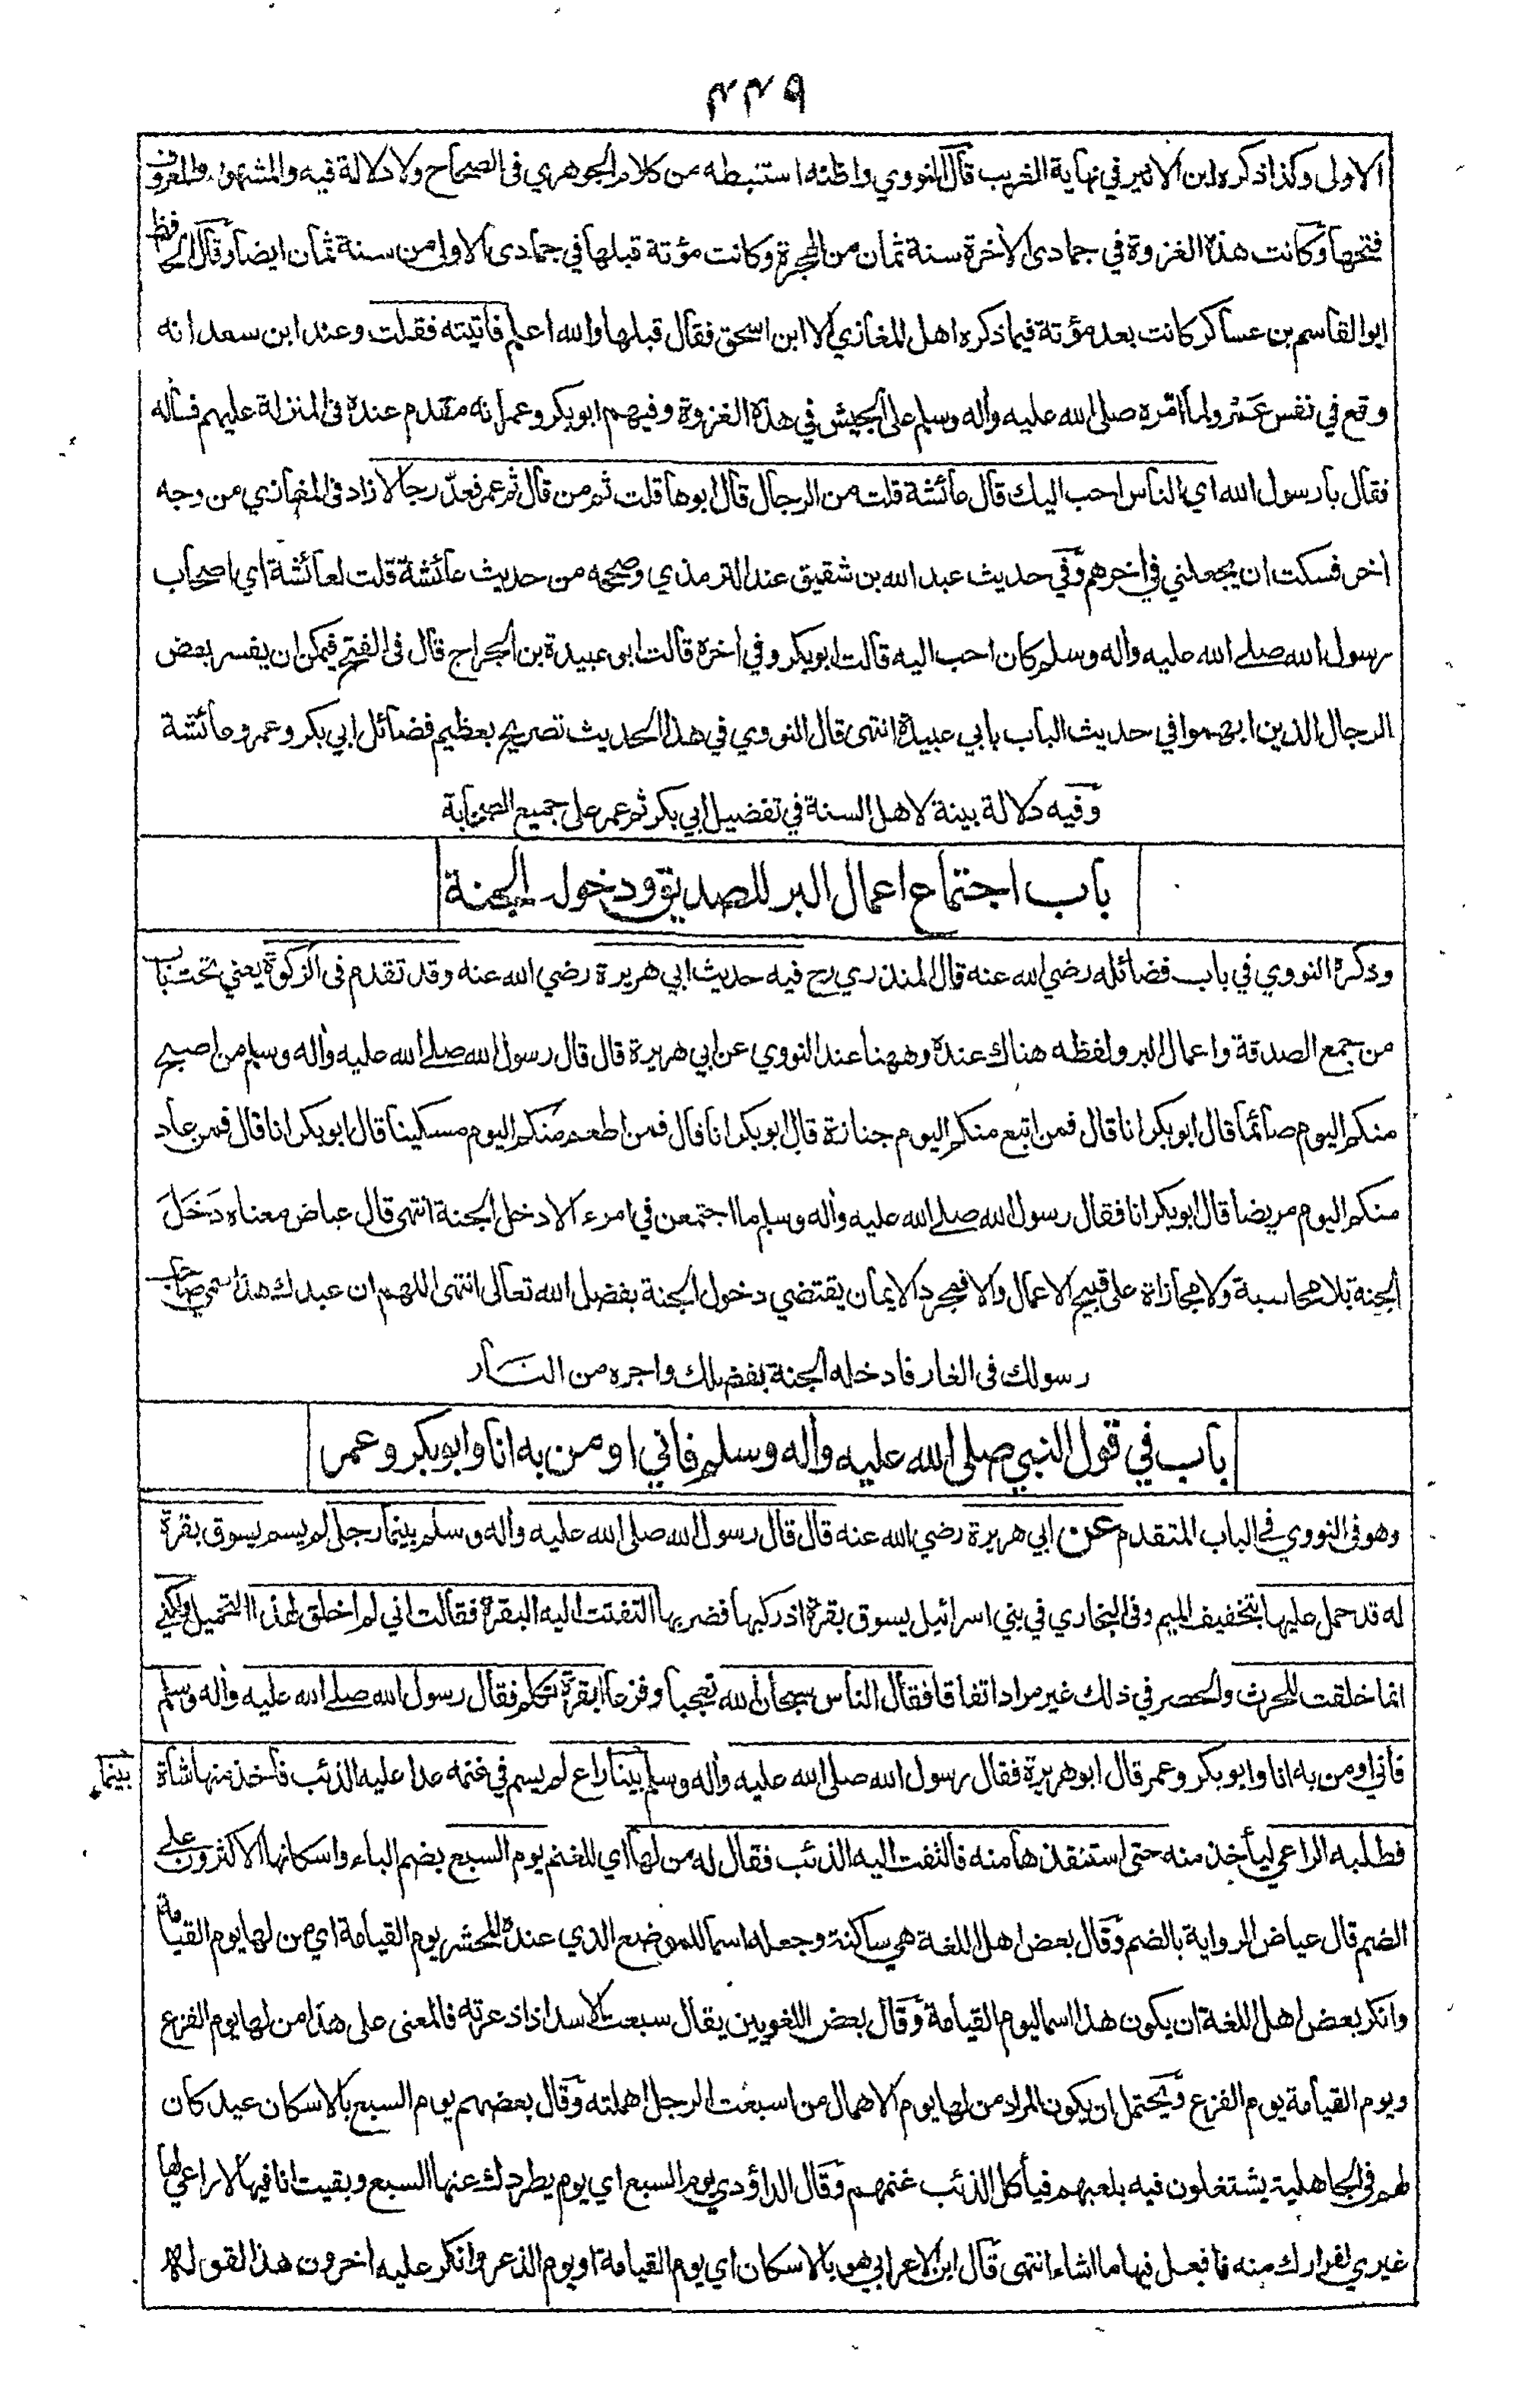 ٤٤٩
الاولى وكذا ذكره ابن الاثير في نهاية الغريب قال النووي واظنه استنبطه من كلام الجوهري فى الصحاح ولا دلالة فيه والمشهور والمعروف
فتحها وكانت هذه الغزوة في جمادى الاخرة سنة ثمان من الهجرة وكانت مؤتة قبلها في جمادى الاولى من سنة ثمان ايضا وقال الحافظ
ابو القاسم بن عساكر كانت بعد مؤتة فيما ذكره اهل المغازي الا ابن اسحق فقال قبلها والله اعلم فاتيته فقلت وعند ابن سعد انه
وقع في نفس عمرو لما امّره صلى الله عليه واله وسلم على الجيش في هذه الغزوة وفيهم ابو بكر وعمر انه مقدم عنده فى المنزلة عليهم فسأله
فقال يا رسول الله اي الناس احب اليك قال عائشة قلت من الرجال قال ابوها قلت ثم من قال ثم عمر فعدّ رجالا زاد فى المغازي من وجه
اخر فسكت ان يجعلني في اخرهم وفي حديث عبد الله بن شقيق عند الترمذي وصححه من حديث عائشة قلت لعائشة اي اصحاب
رسول الله صلى الله عليه واله وسلم كان احب اليه قالت ابو بكر وفي اخره قالت ابى عبيدة بن الجراج قال فى الفتح فيمكن ان يفسر بعض
الرجال الذين ابهموا في حديث الباب بابي عبيدة انتهى قال النووي في هذا الحديث تصريح بعظيم فضائل ابي بكر وعمر وعائشة
وفيه دلالة بينة لاهل السنة في تفضيل ابي بكر ثم عمر على جميع الصحابة
باب اجتماع اعمال البر للصديق ودخول الجنة
وذكره النووي في باب فضائله رضي الله عنه قال المنذري رح فيه حديث ابي هريرة رضي الله عنه وقد تقدم فى الزكوة يعني تحت باب
من جمع الصدقة واعمال البر ولفظه هناك عنده وههنا عند النووي عن ابي هريرة قال قال رسول الله صلى الله عليه واله وسلم من اصبح
منكم اليوم صائما قال ابو بكر انا قال فمن اتبع منكم اليوم جنازة قال ابو بكر انا قال فمن اطعم منكم اليوم مسكينا قال ابو بكر انا قال فمن عاد
منكم اليوم مريضا قال ابو بكر انا فقال رسول الله صلى الله عليه واله وسلم ما اجتمعن في امرء الا دخل الجنة انتهى قال عياض معناه دَخَلَ
الجنة بلا محاسبة ولا مجازاة على قبيح الاعمال والا فمجرد الايمان يقتضي دخول الجنة بفضل الله تعالى انتهى اللهم ان عبدك هذا سمي صاحب
رسولك فى الغار فادخله الجنة بفضلك واجره من النار
باب في قول النبي صلى الله عليه واله وسلم فاني اومن به انا وابو بكر وعمر
وهو فى النووي في الباب المتقدم عن ابي هريرة رضي الله عنه قال قال رسول الله صلى الله عليه واله وسلم بينما رجل لم يسم يسوق بقرة
له قد حمل عليها بتخفيف الميم وفى البخاري في بني اسرائيل يسوق بقرة اذ ركبها فضربها التفتت اليه البقرة فقالت اني لم اخلق لهذا التحميل ولكني
انما خلقت للحرث والحصر في ذلك غير مراد اتفاقا فقال الناس سبحان الله تعجبا وفزعا ابقرة تكلم فقال رسول الله صلى الله عليه واله وسلم
فاني اومن به انا وابو بكر وعمر قال ابو هريرة فقال رسول الله صلى الله عليه واله وسلم بينا راع لم يسم في غنمه عدا عليه الذئب فأخذ منها شاة
بينما
فطلبه الراعي ليأخذ منه حتى استنقذها منه فالتفت اليه الذئب فقال له من لها اي للغنم يوم السبع بضم الباء واسكانها الاكثرون على
الضم قال عياض الرواية بالضم وقال بعض اهل اللغة هي ساكنة وجعله اسما للموضع الذي عنده المحشر يوم القيامة اي من لها يوم القيامة
وانكر بعض اهل اللغة ان يكون هذا اسما ليوم القيامة وقال بعض اللغويين يقال سبعت الاسد اذا ذعرته فالمعنى على هذا من لها يوم الفزع
ويوم القيامة يوم الفزع ويحتمل ان يكون المراد من لها يوم الاهمال من اسبعت الرجل اهملته وقال بعضهم يوم السبع بالاسكان عيد كان
لهم فى الجاهلية يشتغلون فيه بلعبهم فيأكل الذئب غنمهم وقال الداؤدي يوم السبع اي يوم يطردك عنها السبع وبقيت انا فيها لا راعي لها
غيري لفرارك منه فافعل فيها ما اشاء انتهى قال ابن الاعرابي هو بالاسكان اي يوم القيامة او يوم الذعر وانكر عليه اخرون هذا لقوله